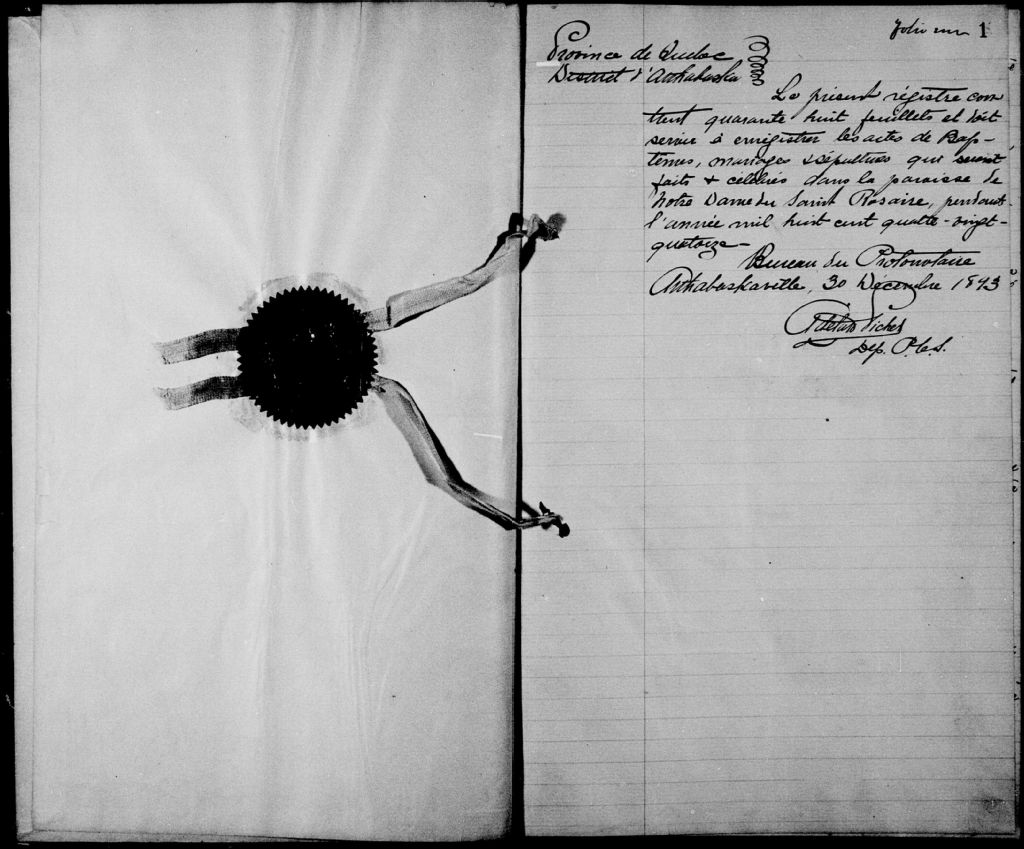 folio un 1
Province de Quebec
District d'Arthabaska
Le présent régistre con
tient quarante huit feuillets et doit
servir à enrégistrer les actes de Bap-
têmes, mariages & sépultures qui seront
faits & célébrés dans la paroisse de
Notre Dame du Saint Rosaire, pendant
l'année mil huit cent quatre-vingt-
quatorze-
Bureau du Protonotaire
Arthabaskaville, 30 Décembre 1893
Picher
Dép. P.C.S.